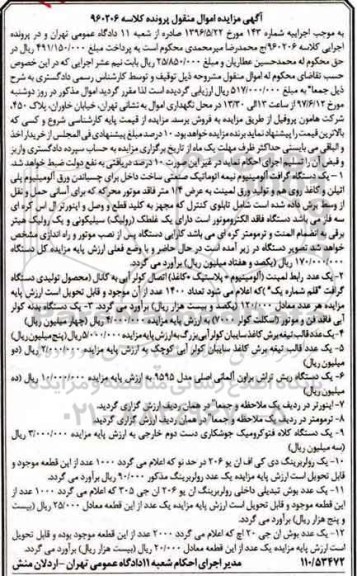 آگهی مزایده اموال منقول پرونده کلاسه ۹۶۰۲۰۶
به موجب اجراییه شماره ۱۴۳ مورخ ۱۳۹۶/۵/۲۲ صادره از شعبه ۱۱ دادگاه عمومی تهران و در پرونده
اجرایی کلاسه ۹۶۰۲۰۶/ج محمدرضا میرمحمدی محکوم است به پرداخت مبلغ ۴۹۱/۱۵۰/۰۰۰ ریال در
حق محکوم له محمدحسین عطاریان و مبلغ ۲۵/۸۵۰/۰۰۰ ریال بابت نیم عشر اجرایی که در این خصوص
حسب تقاضای محکوم له اموال منقول مشروحه ذیل توقیف و توسط کارشناس رسمی دادگستری به شرح
ذیل جمعا" به مبلغ ۵۱۷/۰۰۰/۰۰۰ ریال ارزیابی گردیده است لذا مقرر گردید اموال مذکور در روز دوشنبه
۹۷/۶/۱۲ از ساعت ۱۳ الی ۱۳/۳۰ در محل نگهداری اموال به نشانی تهران، خیابان خاوران، پلاک ۴۵۰،
شرکت هامون پروفیل از طریق مزایده به فروش برسد. مزایده از قیمت پایه کارشناسی شروع و کسی که
بالاترین قیمت را پیشنهاد نماید برنده مزایده خواهد بود. ۱۰ درصد مبلغ پیشنهادی فی المجلس از خریدار اخذ
و الباقی می بایستی حداکثر ظرف مهلت یک ماه از تاریخ برگزاری مزایده به حساب سپرده دادگستری واریز
و فیش آن را تسلیم اجرای احکام نماید. در غیر این صورت ۱۰ درصد دریافتی به نفع دولت ضبط خواهد شد.
۱- یک دستگاه گرافت آلومینیوم نیمه اتوماتیک صنعتی ساخت داخل برای چسباندن ورق آلومینیوم پلی
اتیلن و کاغذ روی هم و تولید ورق لمینت به عرض ۱/۴ متر فاقد موتور محرکه که برای آسانی حمل و نقل
از وسط برش داده شده است شامل تابلوی کنترل که مجهز به کلید قطع و وصل و اینورتر ال اس کره ای
سه فاز می باشد دستگاه فاقد الکتروموتور است دارای یک غلطک (رولیک) سیلیکونی و یک رولیک هیتر
برقی به انضمام المنت و ترمومتر کره ای می باشد کارایی دستگاه پس از نصب موتور و راه اندازی مشخص
خواهد شد تصویر دستگاه در زیر آمده است در حال حاضر و با وضع فعلی ارزش پایه مزایده کل دستگاه
۱۷۰/۰۰۰/۰۰۰ ریال (یکصد و هفتاد میلیون ریال) برآورد می گردد.
۲- یک عدد رابط لمینت (آلومینیوم + پلاستیک + کاغذ) اتصال کولر آبی به کانال (محصول تولیدی دستگاه
گرافت "قلم شماره یک") که اعلام می شود تعداد ۱۴۰۰ عدد از آن موجود و قابل تحویل است ارزش پایه
مزایده هر عدد معادل ۱۲۰/۰۰۰ (یکصد و بیست هزار ریال) برآورد می گردد. ۳- یک دستگاه بدنه کولر
آبی فاقد فن و موتور (اسکلت کولر ۷۰۰۰) به ارزش پایه مزایده ۴/۰۰۰/۰۰۰ ریال (چهار میلیون ریال)
۴- یک عدد قالب تیغه برش کاغذ سایبان کولر آبی بزرگ به ارزش پایه مزایده ۵/۰۰۰/۰۰۰ ریال (پنج میلیون ریال)
۵- یک عدد قالب تیغه برش کاغذ سایبان کولر آبی کوچک به ارزش پایه مزایده ۲/۰۰۰/۰۰۰ ریال (دو
میلیون ریال)
۶- یک دستگاه ریش تراش براون آلمانی اصلی مدل ۹۵۹۵ به ارزش پایه مزایده ۱۰/۰۰۰/۰۰۰ ریال (ده
میلیون ریال)
۷- اینورتر در ردیف یک ملاحظه و جمعا" در همان ردیف ارزش گزاری گردید.
۸- ترمومتر در ردیف یک ملاحظه و جمعا" در همان ردیف ارزش گزاری گردید.
۹- یک دستگاه کلاه فتوکرومیک جوشکاری دست دوم خارجی به ارزش پایه مزایده ۳/۰۰۰/۰۰۰ ریال
(سه میلیون ریال)
۱۰- یک رولربرینگ دی کی اف ان یو ۲۰۶ در حد نو که اعلام می گردد ۱۰۰۰ عدد از این قطعه موجود و
قابل تحویل است ارزش پایه مزایده یک عدد رولربرینگ مذکور ۹۰/۰۰۰ ریال برآورد می گردد.
۱۱- یک عدد بوش تبدیلی داخلی رولربرینگ ان یو ۲۰۶ ان جی ۳۰۵ که اعلام می گردد ۱۰۰۰ عدد از
این قطعه موجود و قابل تحویل است ارزش پایه مزایده یک عدد از این قطعه معادل ۲۵/۰۰۰ ریال (بیست
و پنج هزار ریال) برآورد می گردد.
۱۲- یک عدد بوش ان جی ۲۰ اچ که اعلام می گردد ۲۰۰۰ عدد از این قطعه موجود بوده و قابل تحویل
است ارزش پایه مزایده یک عدد از این قطعه معادل ۲۰/۰۰۰ ریال (بیست هزار ریال) برآورد می گردد.
۱۱۰/۵۳۴۷۲ مدیر اجرای احکام شعبه ۱۱ دادگاه عمومی تهران - اردلان منش